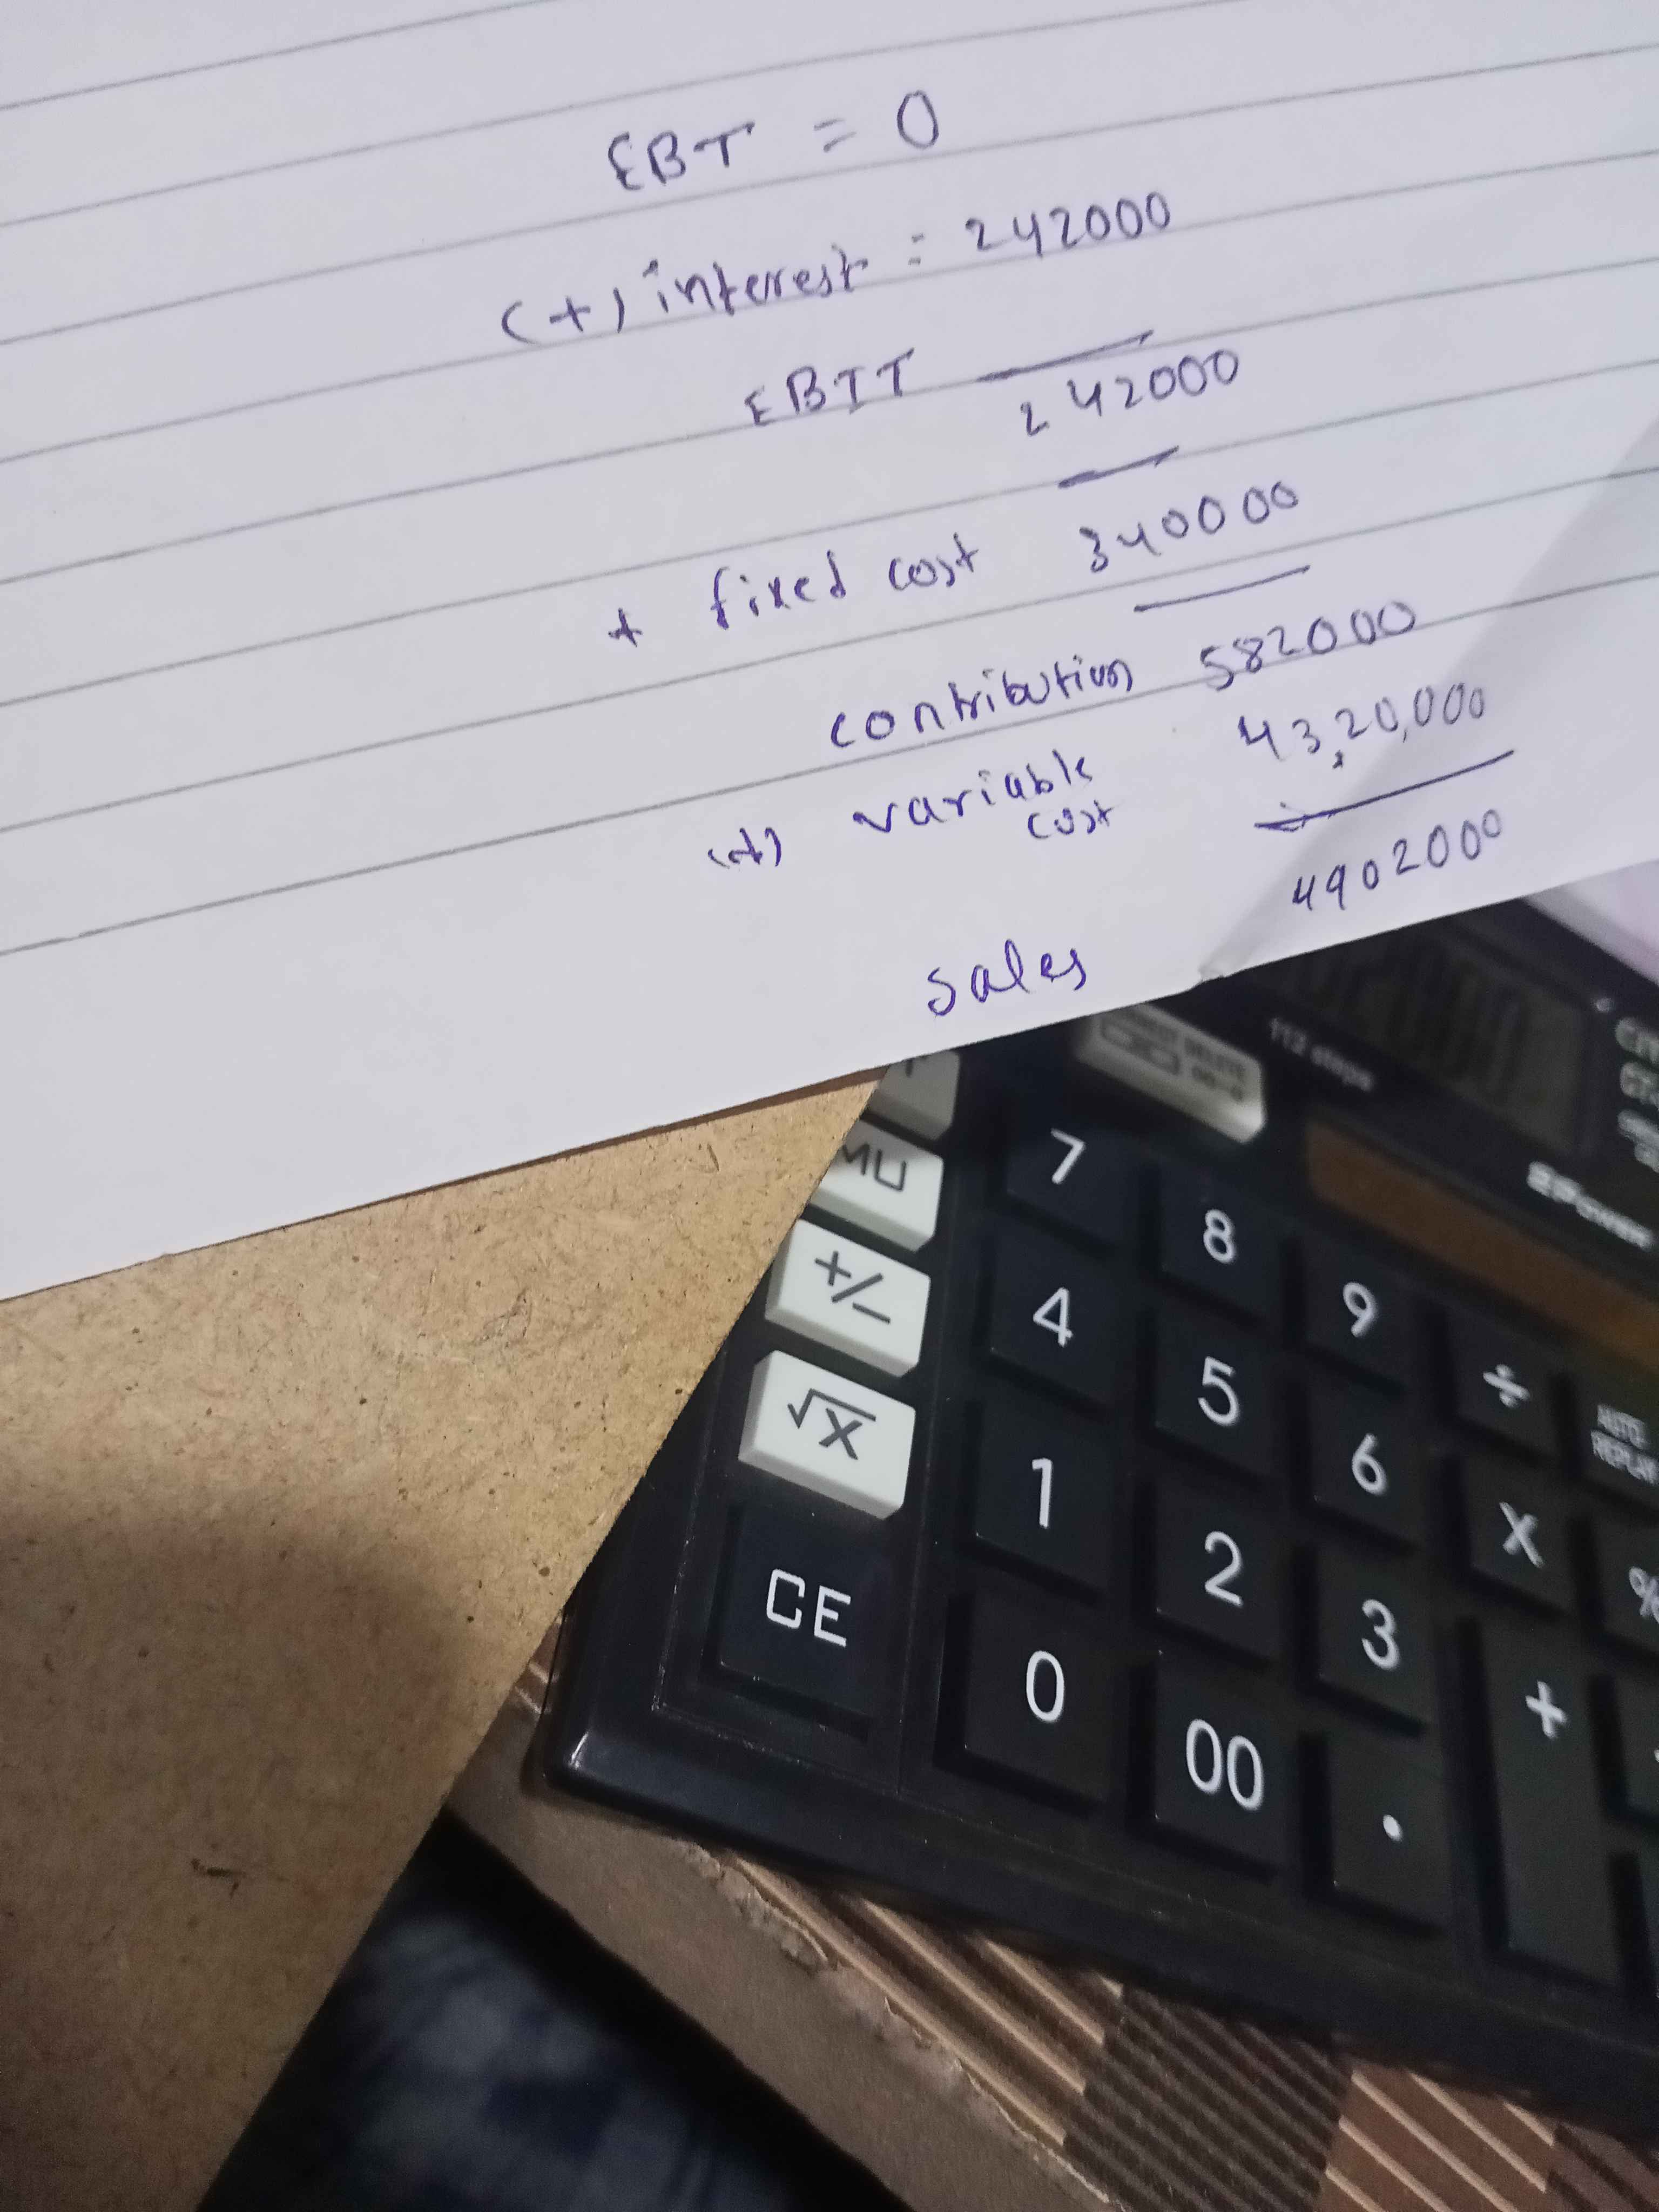 EBT = 0
(+) interest = 242000
EBIT 242000
+ fixed cost 340000
contribution 582000
(+) variable cost 43,20,000
4902000
sales
112 steps
MU
7
8
9
÷
+/-
4
5
6
X
%
AUTO REPLAY
√x
1
2
3
+
CE
0
00
.